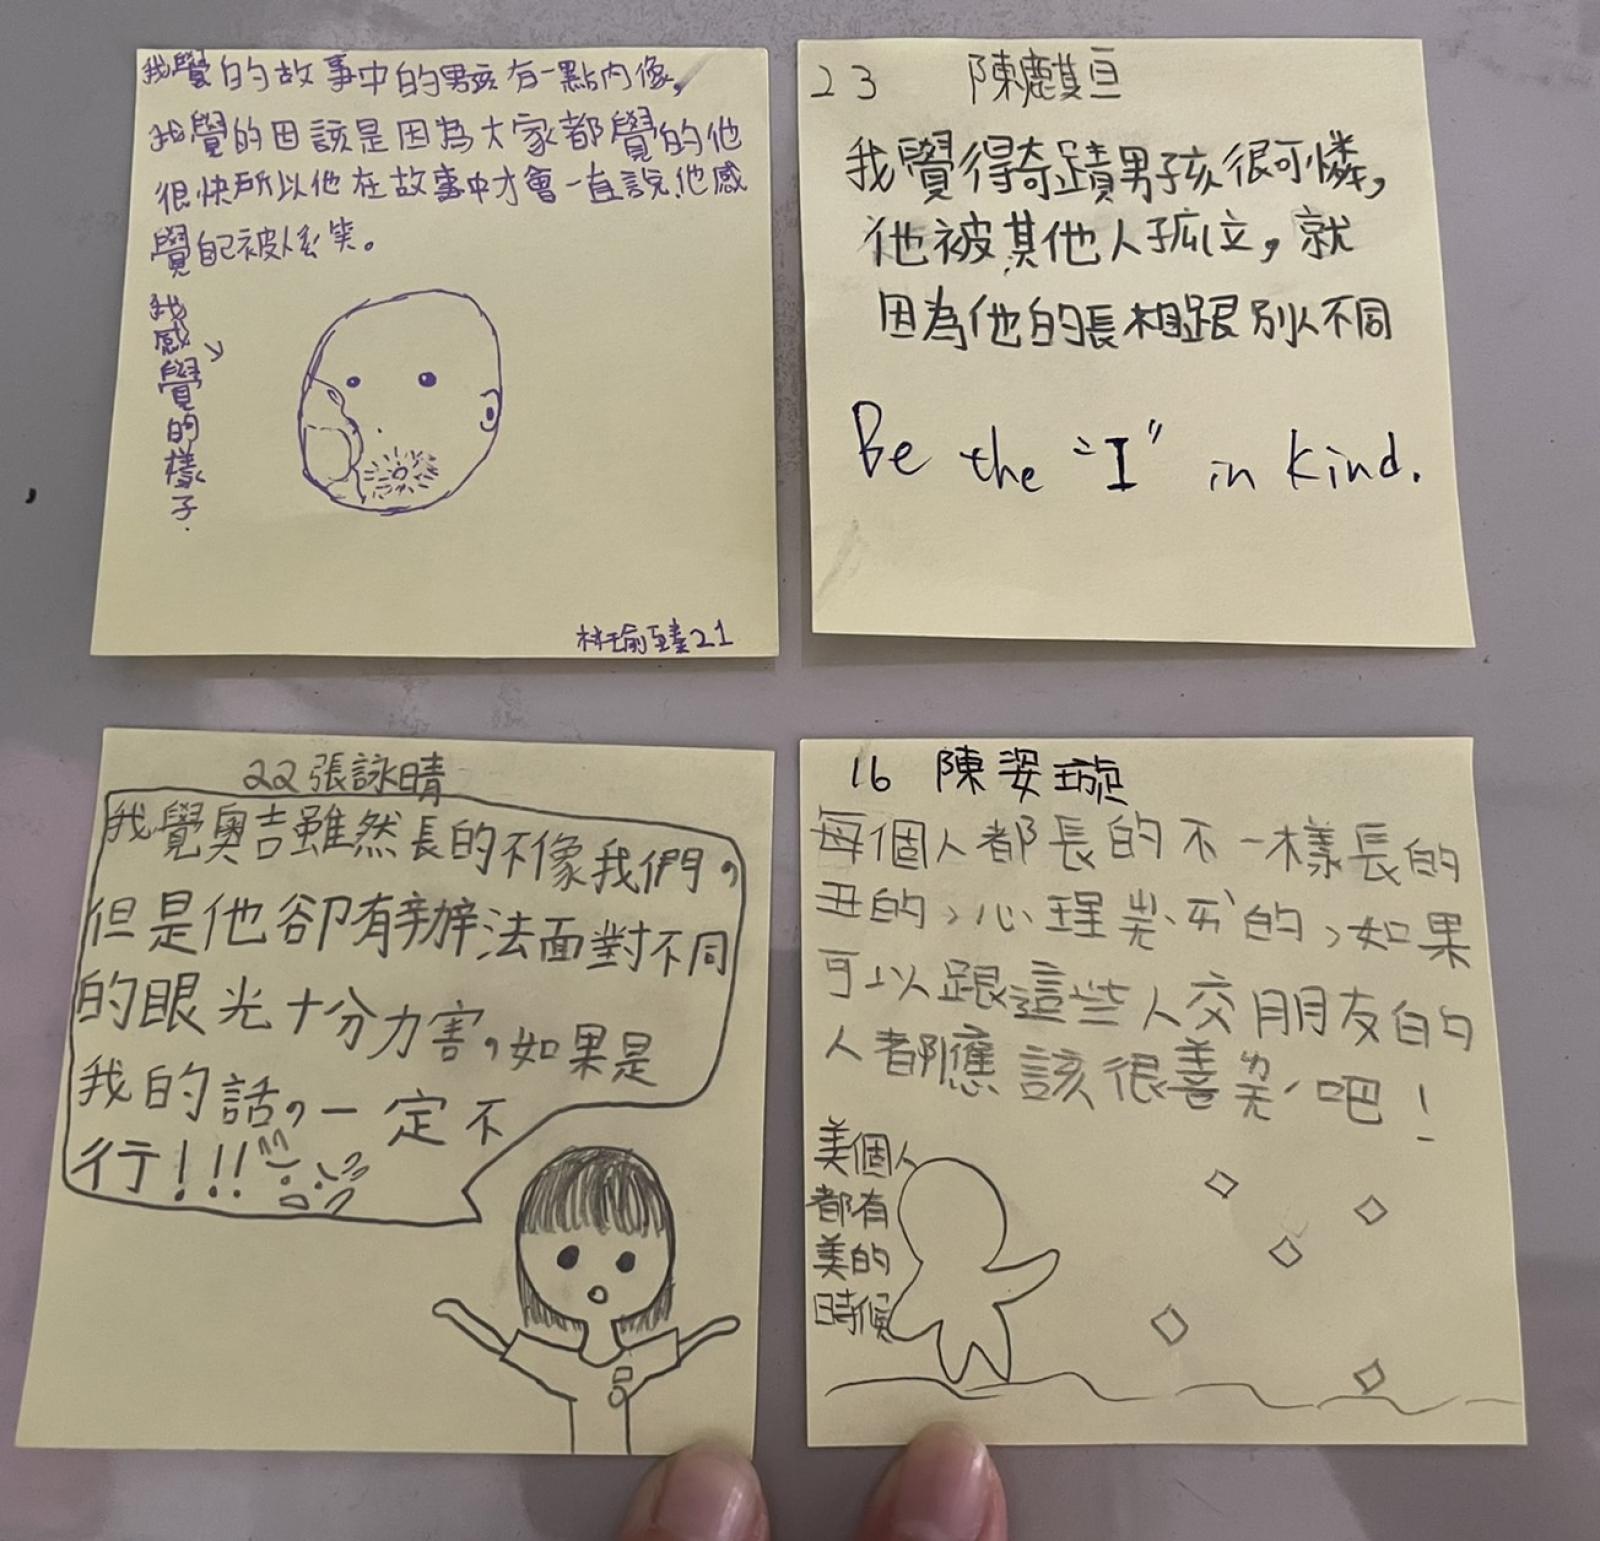 我覺的故事中的男孩有一點內像,
我覺的因該是因為大家都覺的他
很快所以他在故事中才會一直說他感
覺自己被人笑。
我感覺的樣子.
林瑜臻21
23 陳麒亘
我覺得奇蹟男孩很可憐,
他被其他人孤立,就
因為他的長相跟別人不同
Be the "I" in kind.
22 張詠晴
我覺奧吉雖然長的不像我們,
但是他卻有辦法面對不同
的眼光十分力害,如果是
我的話,一定不
行!!!
16 陳姿璇
每個人都長的不一樣長的
丑的,心理ㄓㄤˋ的,如果
可以跟這些人交朋友的
人都應該很善ㄌ吧!
美個人
都有
美的
時候